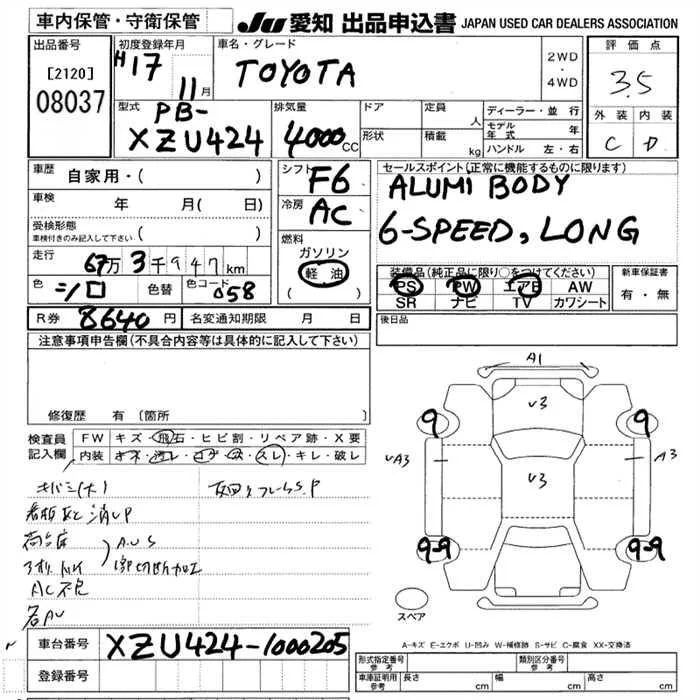 車内保管・守衛保管
JU 愛知 出品申込書 JAPAN USED CAR DEALERS ASSOCIATION
出品番号
[2120]
08037
初度登録年月
H17
11月
車名・グレード
TOYOTA
2WD
・
4WD
評価点
3.5
外装 内装
C D
型式
PB-
XZU424
排気量
4000 CC
ドア
形状
定員
人
積載
kg
ディーラー・並行
モデル年式 年
ハンドル 左・右
車歴 自家用・( )
車検 年 月( 日)
受検形態
車検付きのみ記入して下さい ( )
走行 67万3千947km
色 シロ 色替 色コード 058
R券 8640円 名変通知期限 月 日
シフト
F6
冷房
AC
燃料
ガソリン
軽油
( )
セールスポイント(正常に機能するものに限ります)
ALUMI BODY
6-SPEED, LONG
装備品(純正品に限り○をつけてください)
PS PW エアB AW
SR ナビ TV カワシート
新車保証書
有・無
後日品
注意事項申告欄(不具合内容等は具体的に記入して下さい)
修復歴 有 〔箇所
検査員
記入欄
FW キズ・飛石・ヒビ割・リペア跡・X要
内装 キズ・汚レ・コゲ・穴・スレ・キレ・破レ
キバミ(大)
AC不良
各AU
A1
V3
9 9
VA3
V3
A3
9-9 9-9
スペア
A-キズ E-エクボ U-凹み W-補修跡 S-サビ C-腐食 XX-交換済
車台番号 XZU424-1000205
登録番号
形式指定番号
参考
類別区分番号
参考
車庫証明用
参考
長さ cm 幅 cm 高さ cm